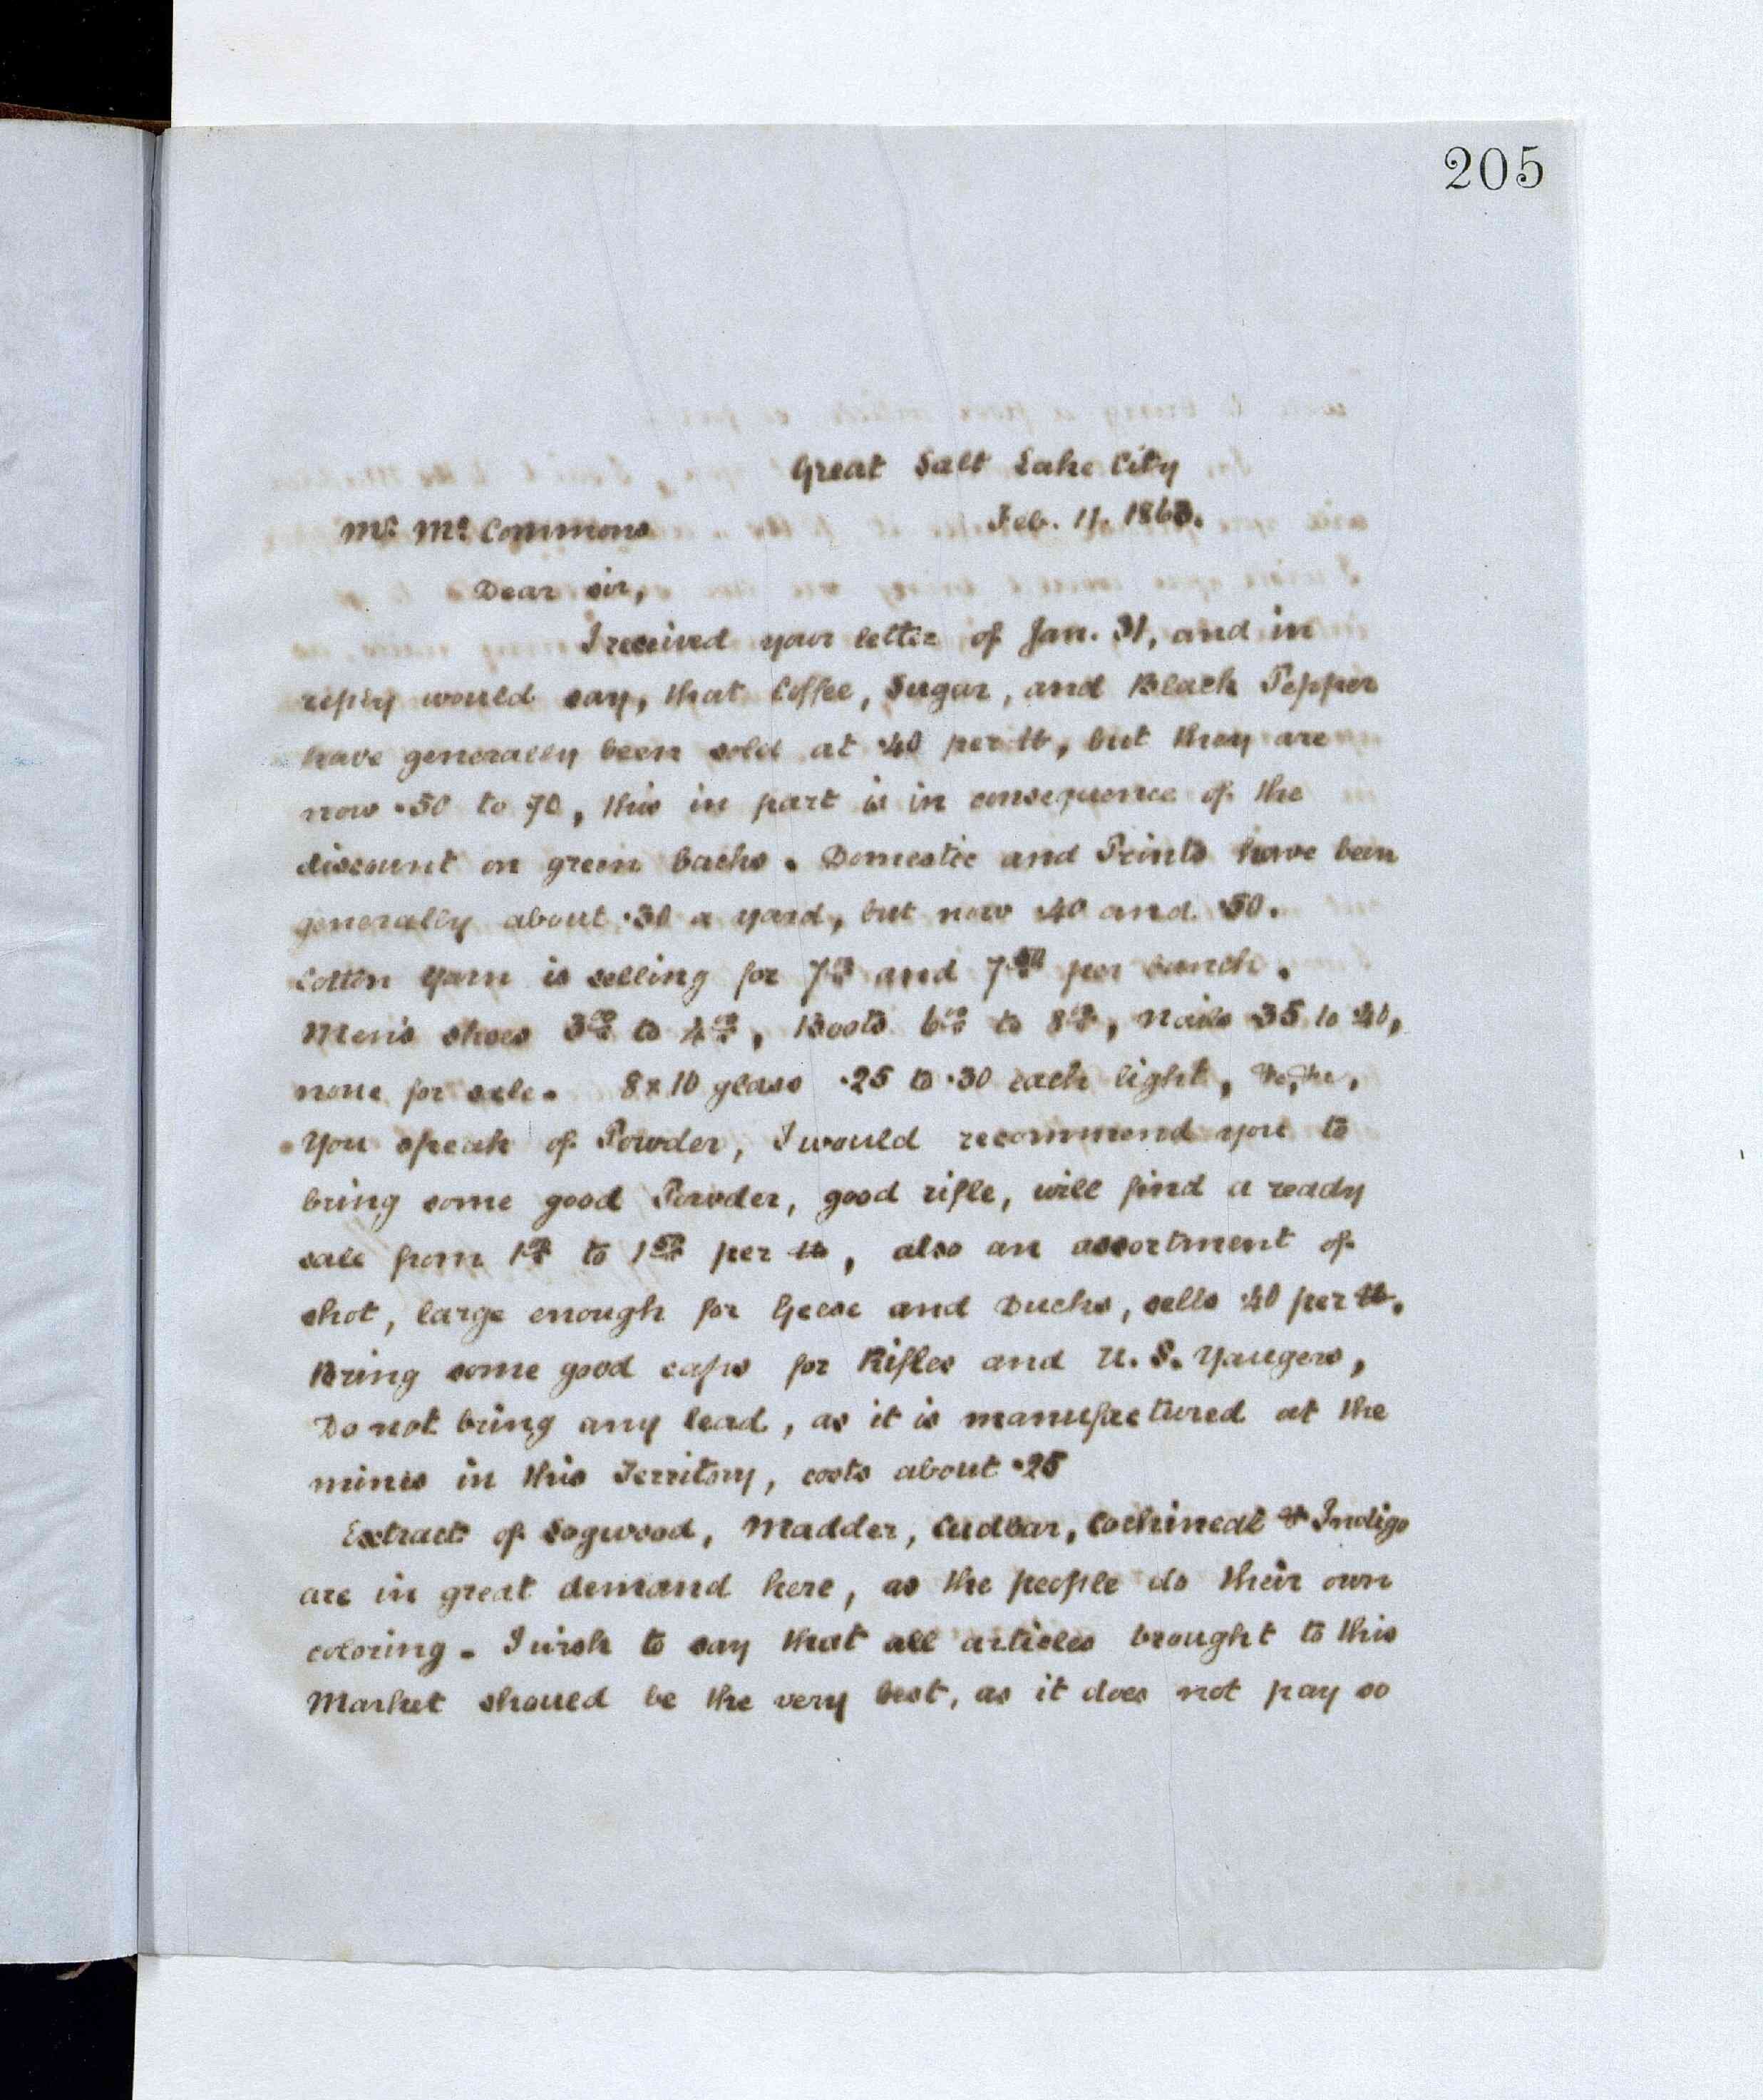 205
Great Salt Lake City
Mr. Mc. Commons Feb. 11. 1863.
Dear sir,
I received your letter of Jan. 31, and in
reply would say, that Coffee, Sugar, and Black Pepper
have generally been sold at .40 per lb, but they are
now .50 to 70, this in part is in consequence of the
discount on green backs. Domestic and Prints have been
generally about .30 a yard, but now .40 and .50.
Cotton Yarn is selling for 7.00 and 7.50 per bunch.
Men's shoes 3.00 to 4.00, Boots 6.00 to 8.00, Nails .35 to .40,
none for sale. 8x10 glass .25 to .30 each light, &c, &c,
You speak of Powder, I would recommend you to
bring some good Powder, good rifle, will find a ready
sale from to per lb, also an assortment of
shot, large enough for Geese and Ducks, sells .40 per lb.
Bring some good caps for Rifles and U. S. Yaugers,
Do not bring any lead, as it is manufactured at the
mines in this Territory, costs about .25
Extract of Logwood, Madder, Cudbar, Cochineal & Indigo
are in great demand here, as the people do their own
coloring. I wish to say that all articles brought to this
Market should be the very best, as it does not pay so